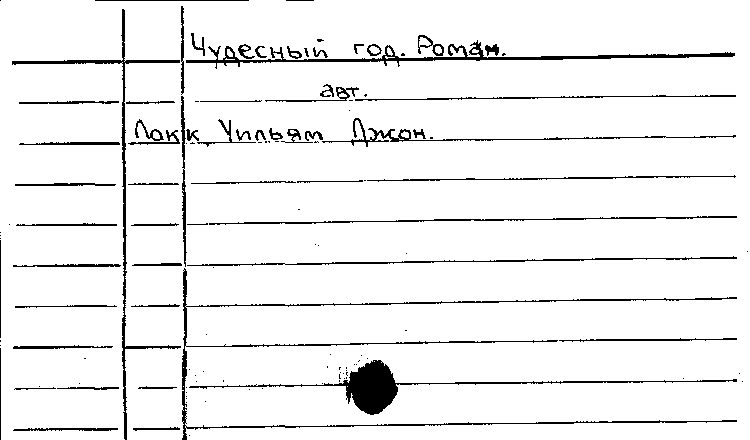 Чудесный год. Роман.
авт.
Локк, Уильям Джон.